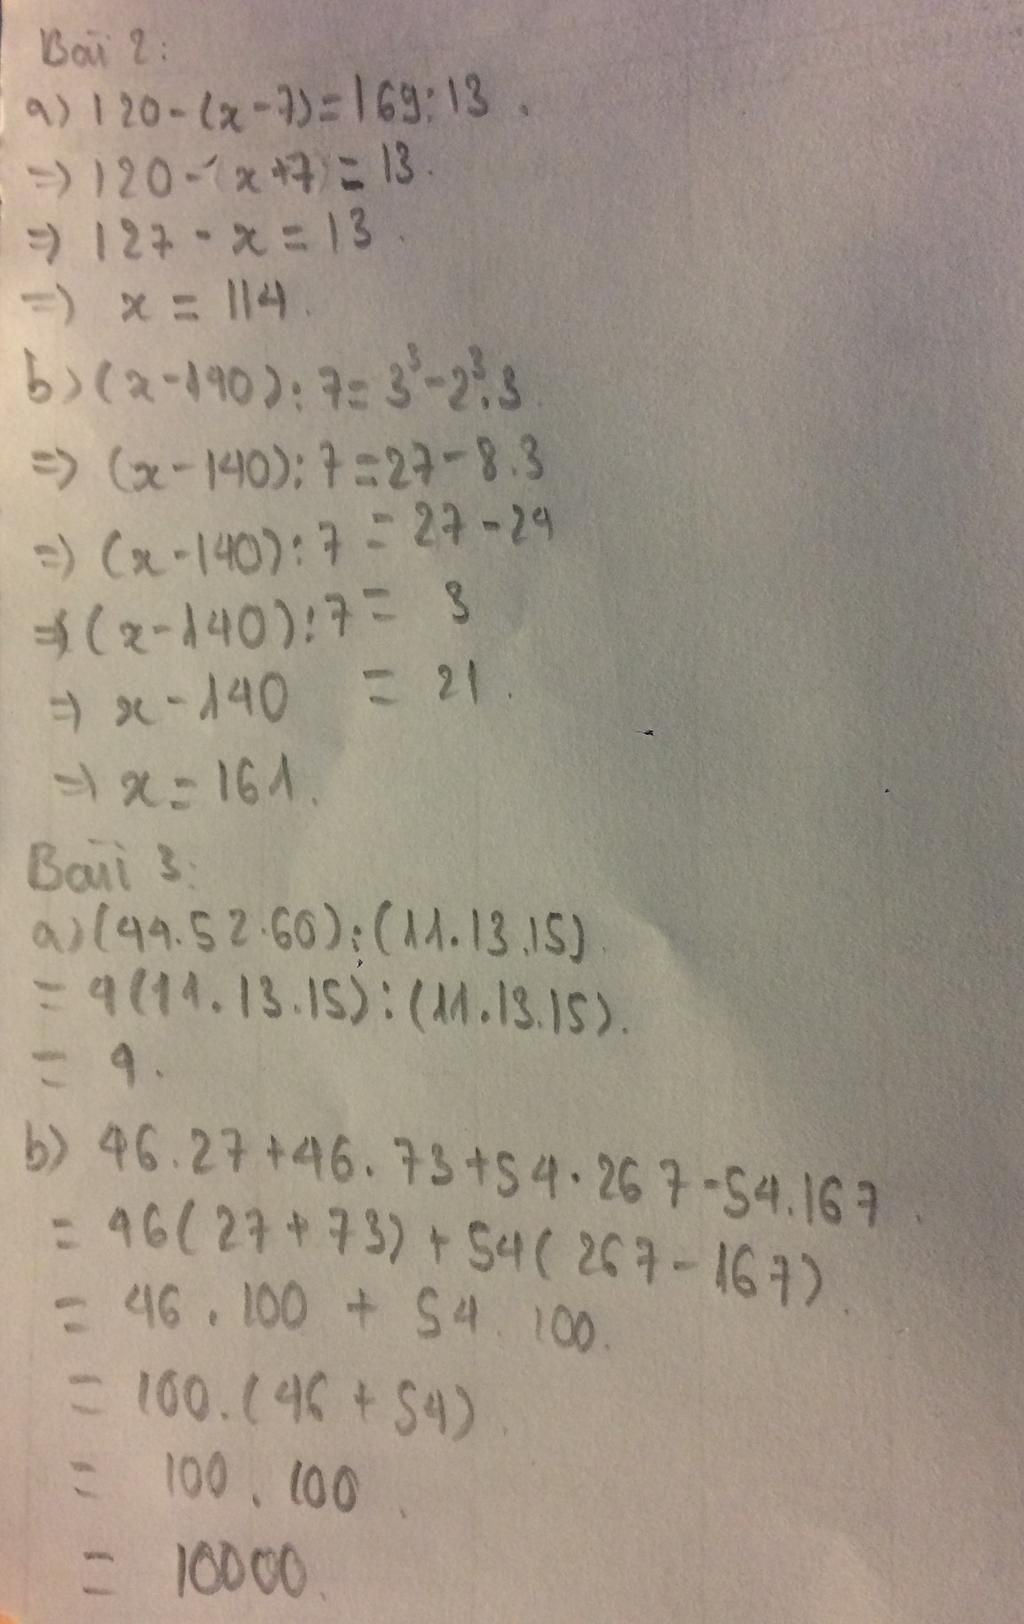 Bài 2:
a) 120-(x-7)=169:13.
=> 120-(x+7)=13.
=> 127-x=13.
=> x=114.
b) (x-140):7=3³-2³.3
=> (x-140):7=27-8.3
=> (x-140):7=27-24
=> (x-140):7=3
=> x-140=21.
=> x=161.
Bài 3:
a) (44.52.60):(11.13.15)
=4(11.13.15):(11.13.15).
=4.
b) 46.27+46.73+54.267-54.167.
=46(27+73)+54(267-167).
=46.100+54.100.
=100.(46+54).
=100.100.
=10000.